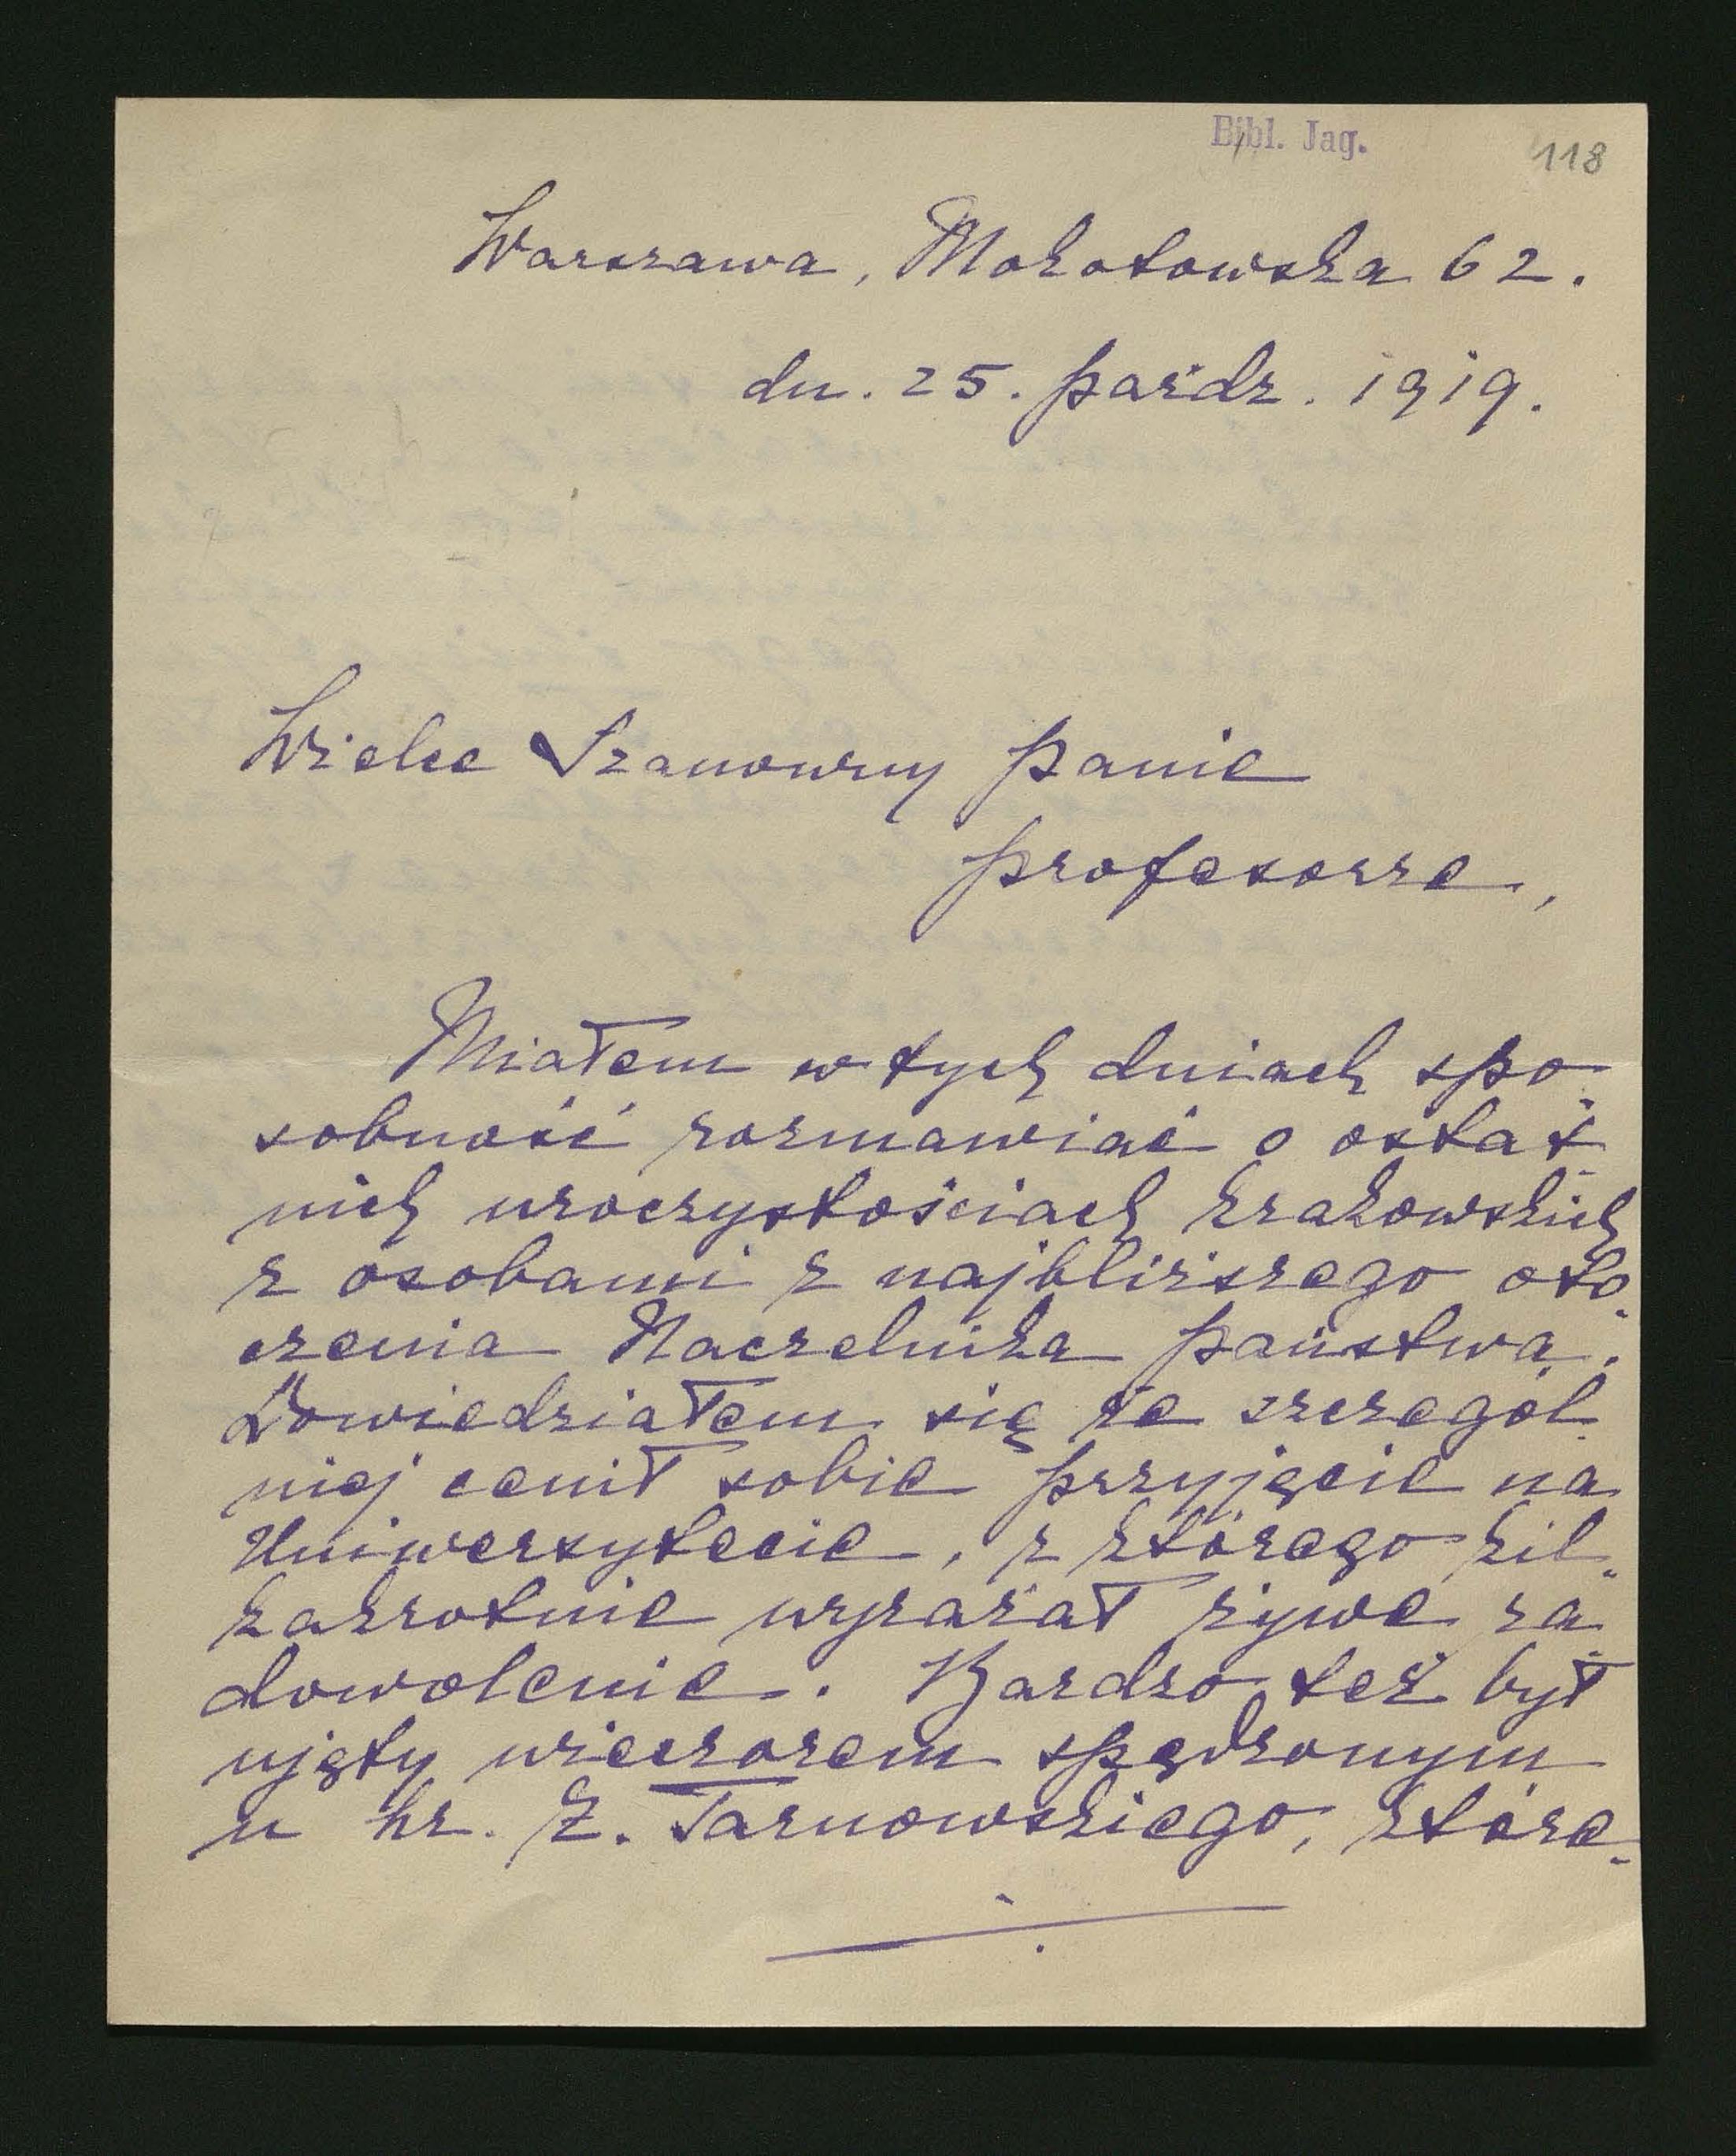 Bibl. Jag.
118
Warszawa, Mokotowska 62.
dn. 25. paźdz. 1919.
Wielce Szanowny Panie
Profesorze,
Miałem w tych dniach spo-
sobność rozmawiać o ostat-
nich uroczystościach krakowskich
z osobami z najbliższego oto-
czenia Naczelnika Państwa.
Dowiedziałem się że szczegól-
niej cenił sobie przyjęcie na
Uniwersytecie, z którego kil-
kakrotnie wyrażał żywe za-
dowolenie. Bardzo też był
ujęty wieczorem spędzonym
u hr. Z. Tarnowskiego, które-